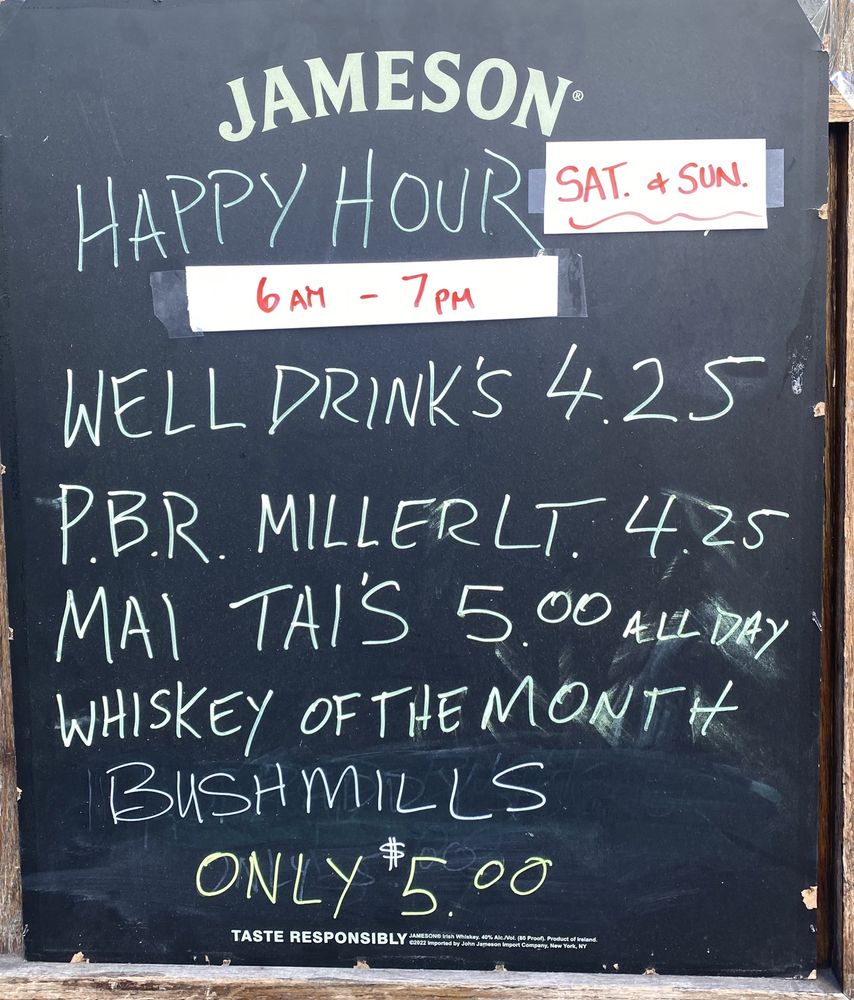 JAMESON®
HAPPY HOUR SAT. & SUN.
6 AM - 7 PM
WELL DRINK'S 4.25
P.B.R. MILLER LT. 4.25
MAI TAI'S 5.00 ALL DAY
WHISKEY OF THE MONTH
BUSHMILLS
ONLY $5.00
TASTE RESPONSIBLY JAMESON® Irish Whiskey. 40% Alc./Vol. (80 Proof). Product of Ireland.
©2022 Imported by John Jameson Import Company, New York, NY